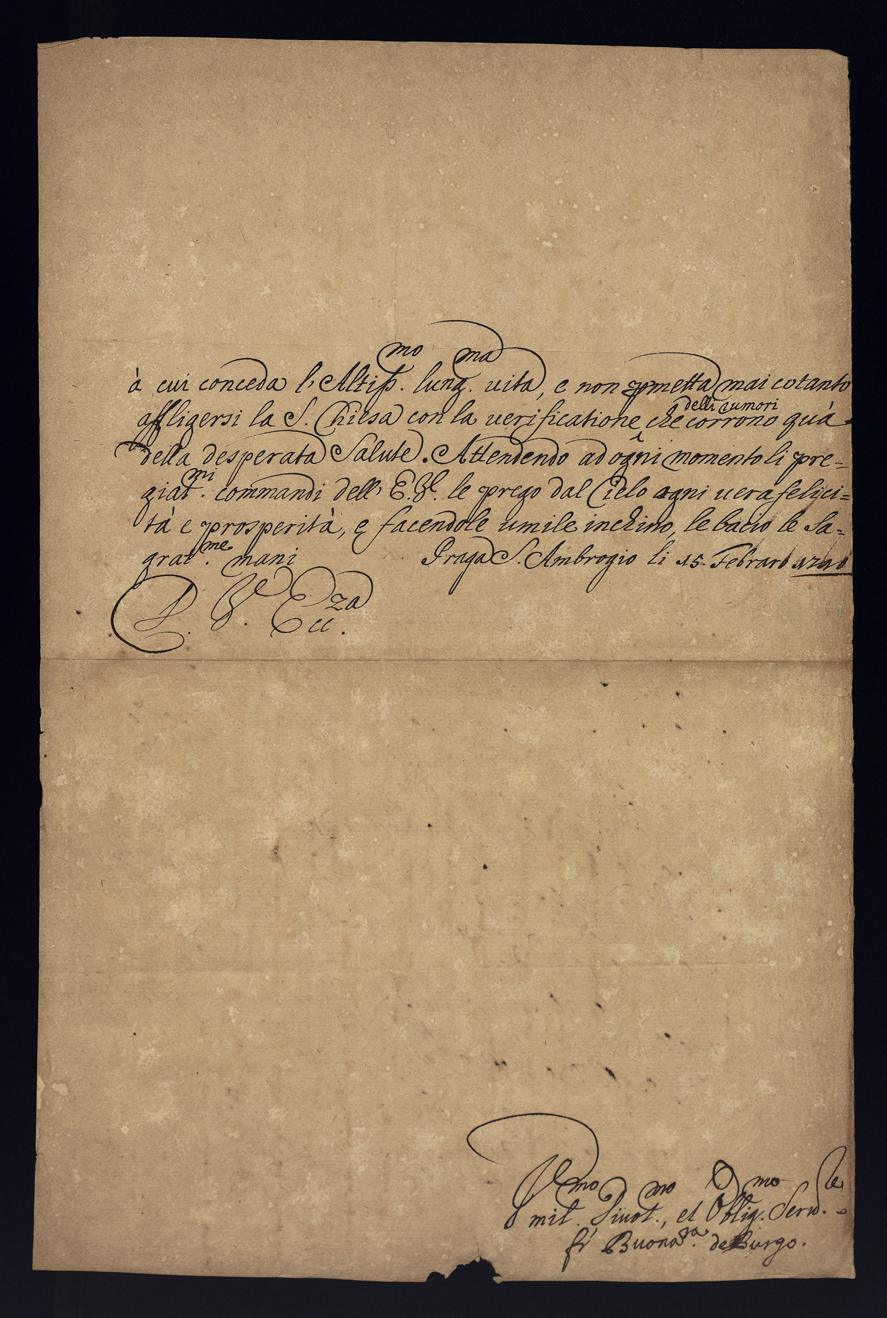 à cui conceda l'Altiss.mo lung.ma vita, e non permetta mai cotanto
affligersi la S. Chiesa con la verificatione delli rumori che corrono quà
della desperata Salute. Attendendo ad ogni momento li pre=
giat.mi commandi dell' E.V. le prego dal Cielo ogni vera felici=
tà e prosperità, e facendole umile inchino, le bacio le Sa=
grat.me mani Praga S. Ambrogio li 15. Febraro
D. V. Ecc.za
Vmil.mo Divot.mo, et Oblig.mo Serv.re
fr Buonav.ra de Burgo.